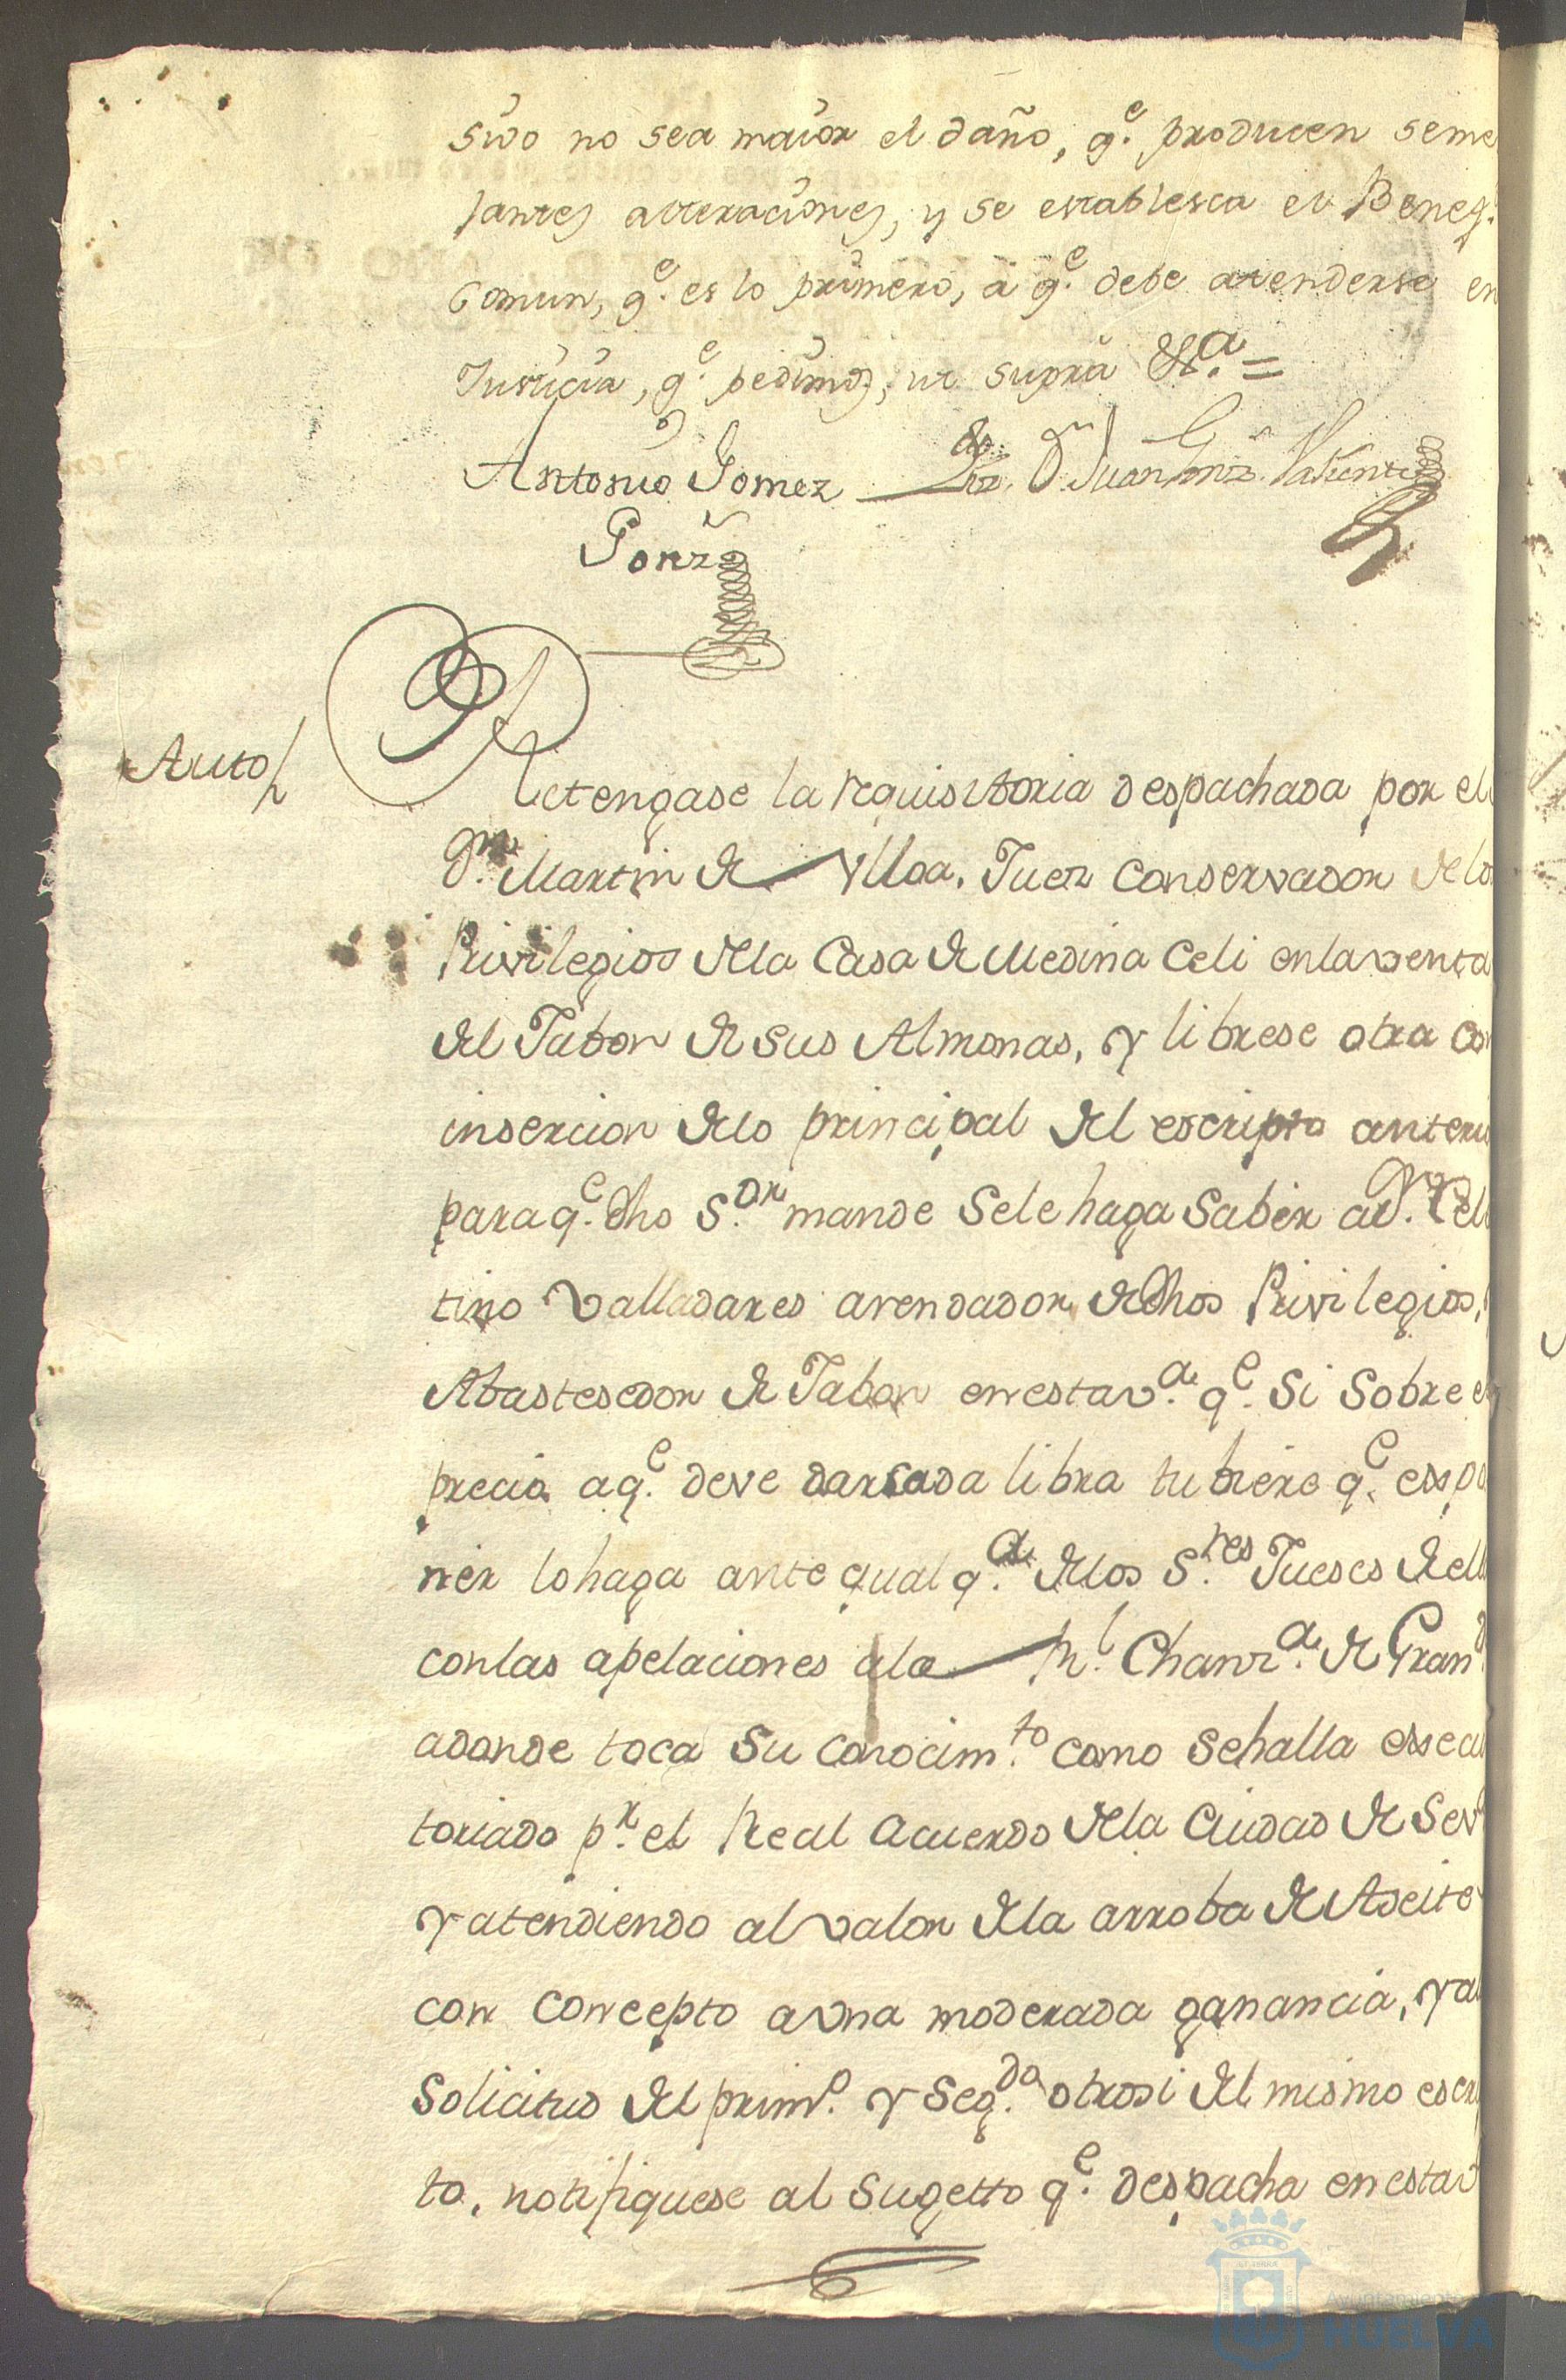 sivo no sea maior el daño, q.e producen seme
jantes alteraciones, y se establesca el Benef.
Comun, q.e es lo primero, à q.e debe atenderse en
Justicia, q.e pedimos, ut supra &.a =
Antonio Gomez
Lizdo. Dn Juan Valiente
Gonz
Auto
Retengase la requisitoria despachada por el
Dn. Martin de Ylloa, Juez Conservador de lo
Privilegios dela Casa de Medina Celi en la venta
del Jabon de sus Almonas, y librese otra con
insercion delo principal del escripto anteri
para q.e dho S.or mande sele haga saber a Dn. Cele
tino Valladares arrendador de dhos Privilegios,
Abastesedor de Jabon en esta v.a q.e si sobre e
precio aq.e deve dar cada libra tubiere q.e expo
ner lo haga ante qual q.a delos S.res Jueses de ell
con las apelaciones ala Rl. Chanz.a de Gran.
adonde toca su conocim.to como se halla execu
toriado p.r el Real Acuerdo dela Ciudad de Sev
y atendiendo al valor dela arroba de Aseite
con concepto a vna moderada ganancia, y al
solicitud del prim.o y seg.do otrosi del mismo escri
to, notifiquese al sugetto q.e despacha en esta v
HUELVA